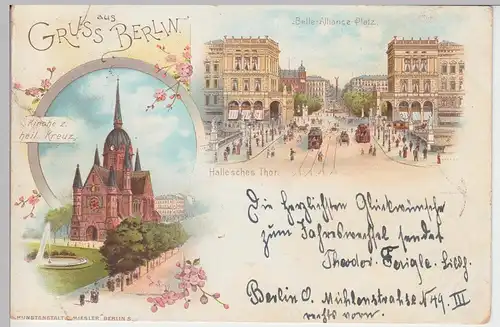 GRUSS aus BERLIN.
Belle-Alliance-Platz.
Kirche z.
heil. Kreuz.
Hallesches Thor.
Die herzlichsten Glückwünsche
zum Jahreswechsel sendet
Theodor
Berlin O. Mühlenstrahse N 49 III
rechts vorn.
KUNSTANSTALT C. BERLIN S.